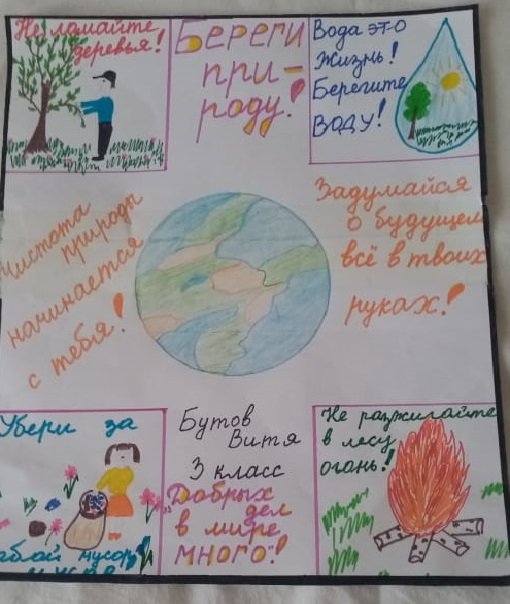 Не ломайте
деревья!
Береги
при-
роду!
Вода это
жизнь!
Берегите
воду!
Чистота
природы
начинается
с тебя!
Задумайся
о будущем
всё в твоих
руках!
Убери за
мусор!
Бутов
Витя
3 класс
"Добрых
дел
в мире
много"!
Не разжигайте
в лесу
огонь!